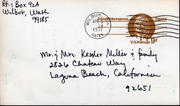 Rt-1 Box 92A
Wilbur, Wash
99185
1977
Mr. & Mrs. Kessler Miller & family
2526 Chateau Way
Laguna Beach, California
92651